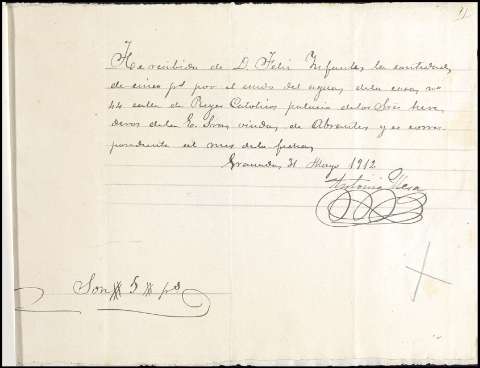 He recibido de D. Felix Infantes la cantidad
de cinco pts por el envio del agua de la casa no
44 calle de Reyes Catolicos palacio de los Sres here
deros de la E. Sra viuda de Abrantes y es corres
pondiente al mes de la fecha
Granada 31 Mayo 1912
Antonio Mesa
Son # 5 # pts